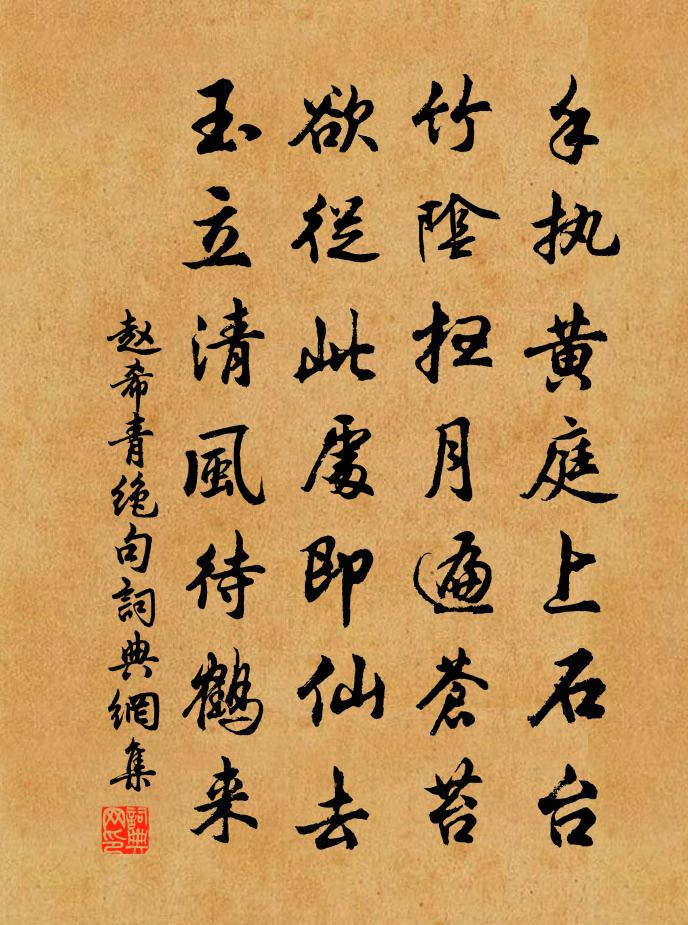 手执黄庭上石台
竹陰扫月遍蒼苔
欲從此處即仙去
玉立清風待鶴来
赵希青絶句詞典網集
詞典网印